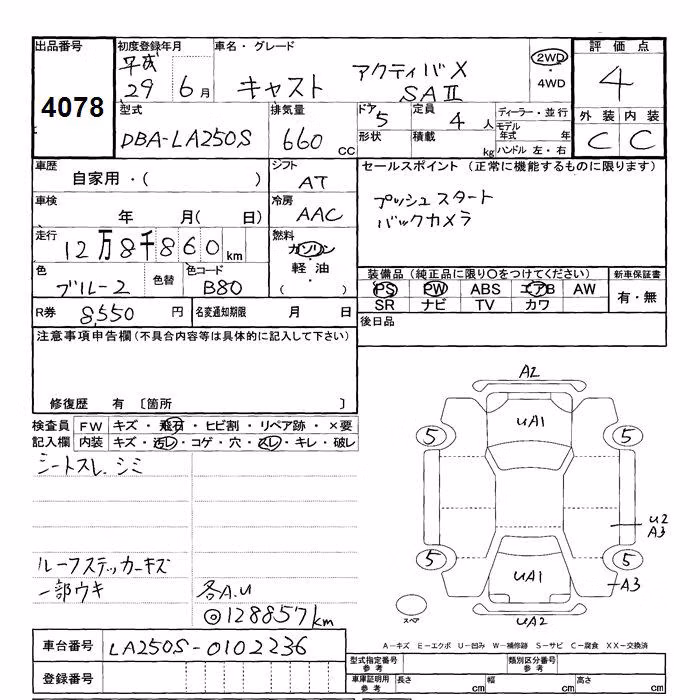 出品番号 初度登録年月 車名・グレード 評価点
4078 平成 29 6月 キャスト アクティバX SAⅡ 2WD ・ 4WD 4
型式 排気量 ドア 定員 ディーラー・並行 外装 内装
DBA-LA250S 660 CC 5 4人 C C
形状 積載 kg モデル年式 年
ハンドル 左・右
車歴 シフト セールスポイント (正常に機能するものに限ります)
自家用・( ) AT プッシュスタート
バックカメラ
車検 冷房
年 月( 日) AAC
走行 燃料
12万8千860km ガソリン・軽油・( )
色 色替 色コード 装備品(純正品に限り○をつけてください) 新車保証書
ブルー2 B80 PS PW ABS エアB AW 有・無
SR ナビ TV カワ
R券 8,550円 名変通知期限 月 日 後日品
注意事項申告欄(不具合内容等は具体的に記入して下さい)
修復歴 有 〔箇所 〕
検査員 FW キズ・飛石・ヒビ割・リペア跡・×要
記入欄 内装 キズ・汚レ・コゲ・穴・スレ・キレ・破レ
シートスレ、シミ
ルーフステッカーキズ
一部ウキ 各A.U
◎128857km
A2
UA1
5 5
U2
A3
5 5
A3
UA1
UA2
スペア
車台番号 LA250S-0102236
A-キズ E-エクボ U-凹み W-補修跡 S-サビ C-腐食 XX-交換済
登録番号
型式指定番号 参考 類別区分番号 参考
車庫証明用 参考 長さ cm 幅 cm 高さ cm